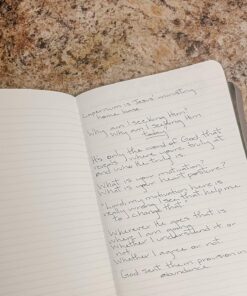 Capernaum is Jesus' ministry
home base.
Why am I seeking Him?
Why am I seeking Him
today?
It's only the word of God that
where you're truly at
and who He truly is.
What is your motivation?
What is your heart posture?
Lord, my motivation here is
help me
to change that.
Wherever He goes that is
where I am going
whether I understand it or
not
Whether I agree or not.
God sent them provision in
abundance